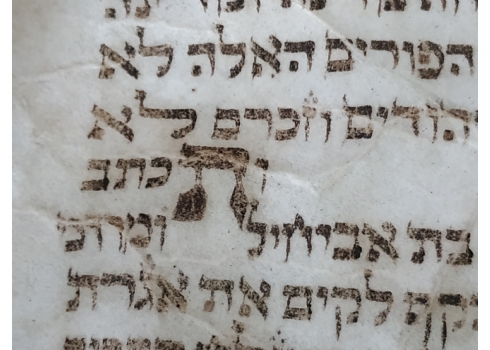 הפורים האלה לא
וזכרם לא
ותכתב
בת אביחיל ומרדכי
לקים את אגרת